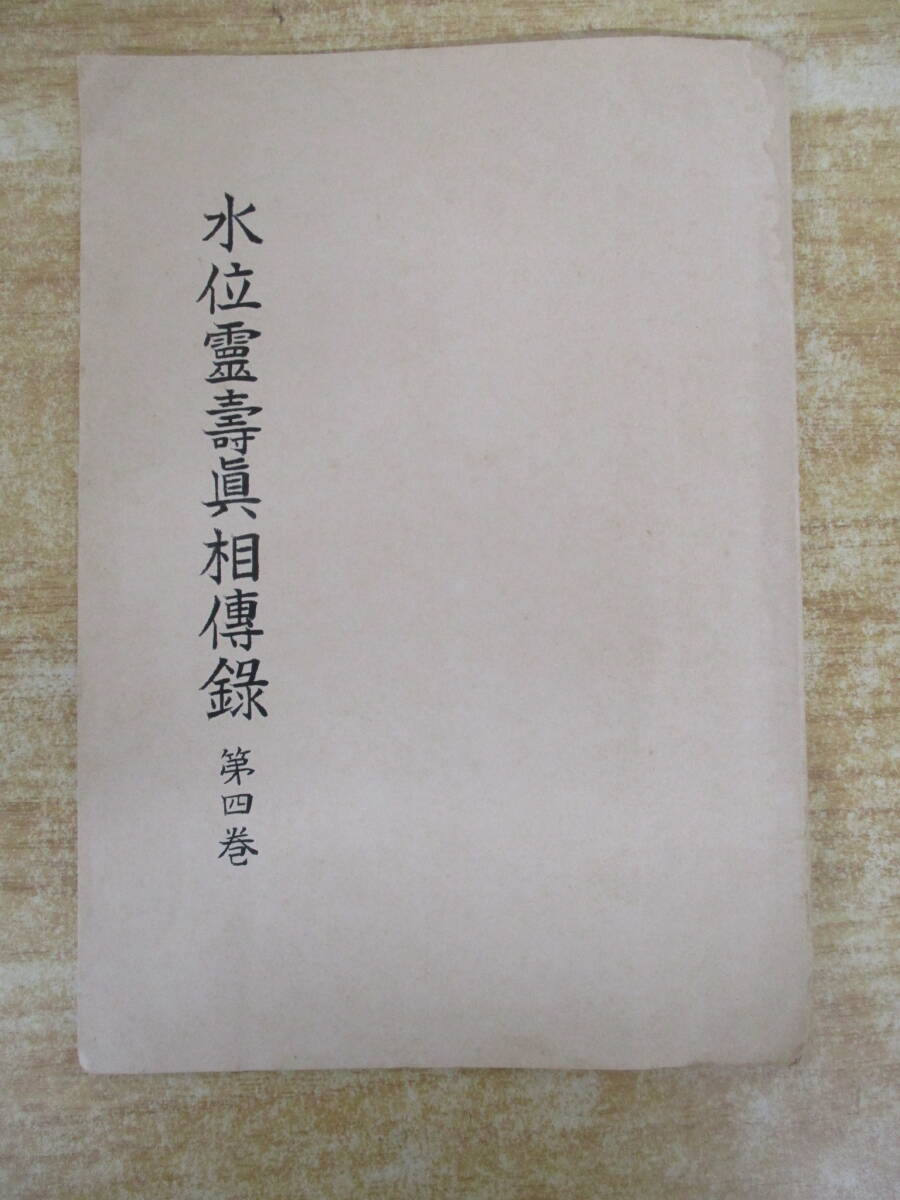 水位靈壽眞相傳錄 第四巻